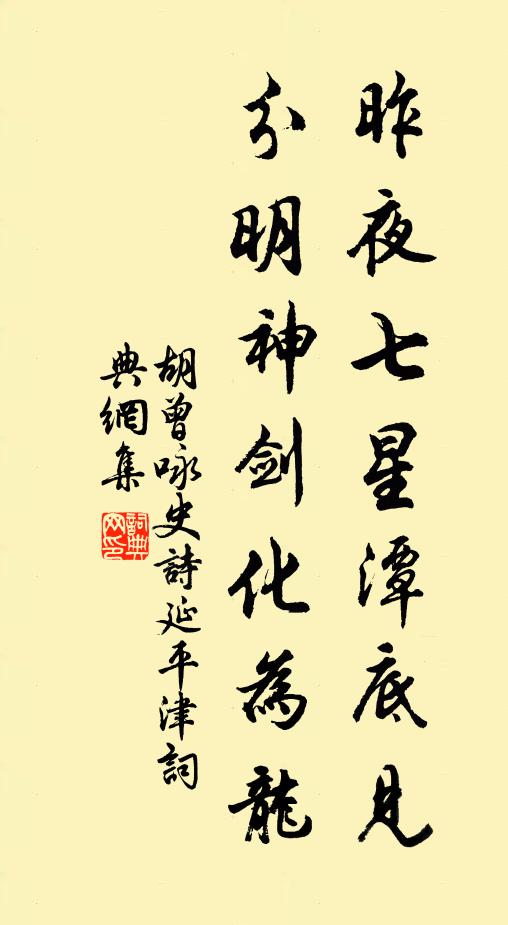 昨夜七星潭底見
分明神劍化為龍
胡曾咏史詩延平津詞
典網集
詞典
网印